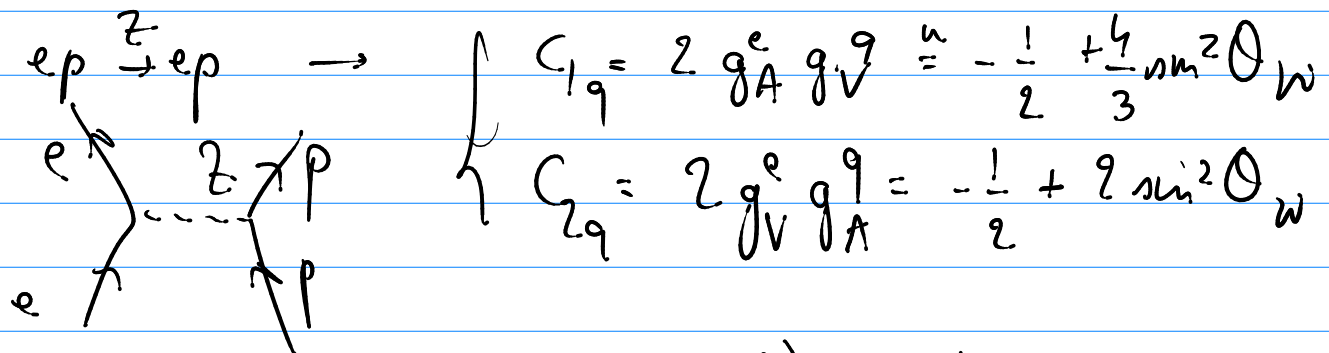 ep →^Z ep → { C_{1q} = 2 g_A^e g_V^q =^u - 1/2 + 4/3 sin²θ_W
C_{2q} = 2 g_V^e g_A^q = - 1/2 + 2 sin²θ_W
e Z p
e p